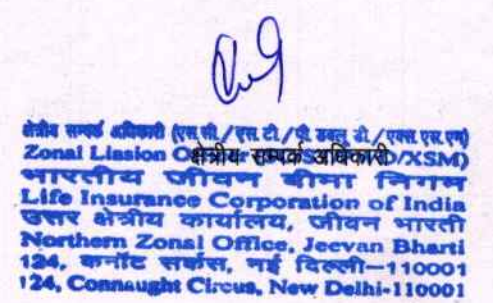 क्षेत्रीय सम्पर्क अधिकारी (एस.सी./एस.टी./पी.डबलू.डी./एक्स.एस.एम)
Zonal Liasion
क्षेत्रीय सम्पर्क अधिकारी
D/XSM)
भारतीय जीवन बीमा निगम
Life Insurance Corporation of India
उत्तर क्षेत्रीय कार्यालय, जीवन भारती
Northern Zonal Office, Jeevan Bharti
124, कनॉट सर्कस, नई दिल्ली-110001
124, Connaught Circus, New Delhi-110001